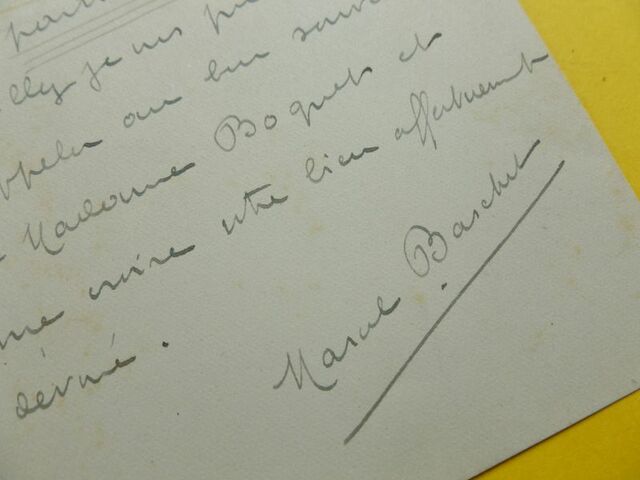 je vous
au bon souv
Madame Boquet et
me croire votre bien affectueusement
dévoué.
Marcel Baschet